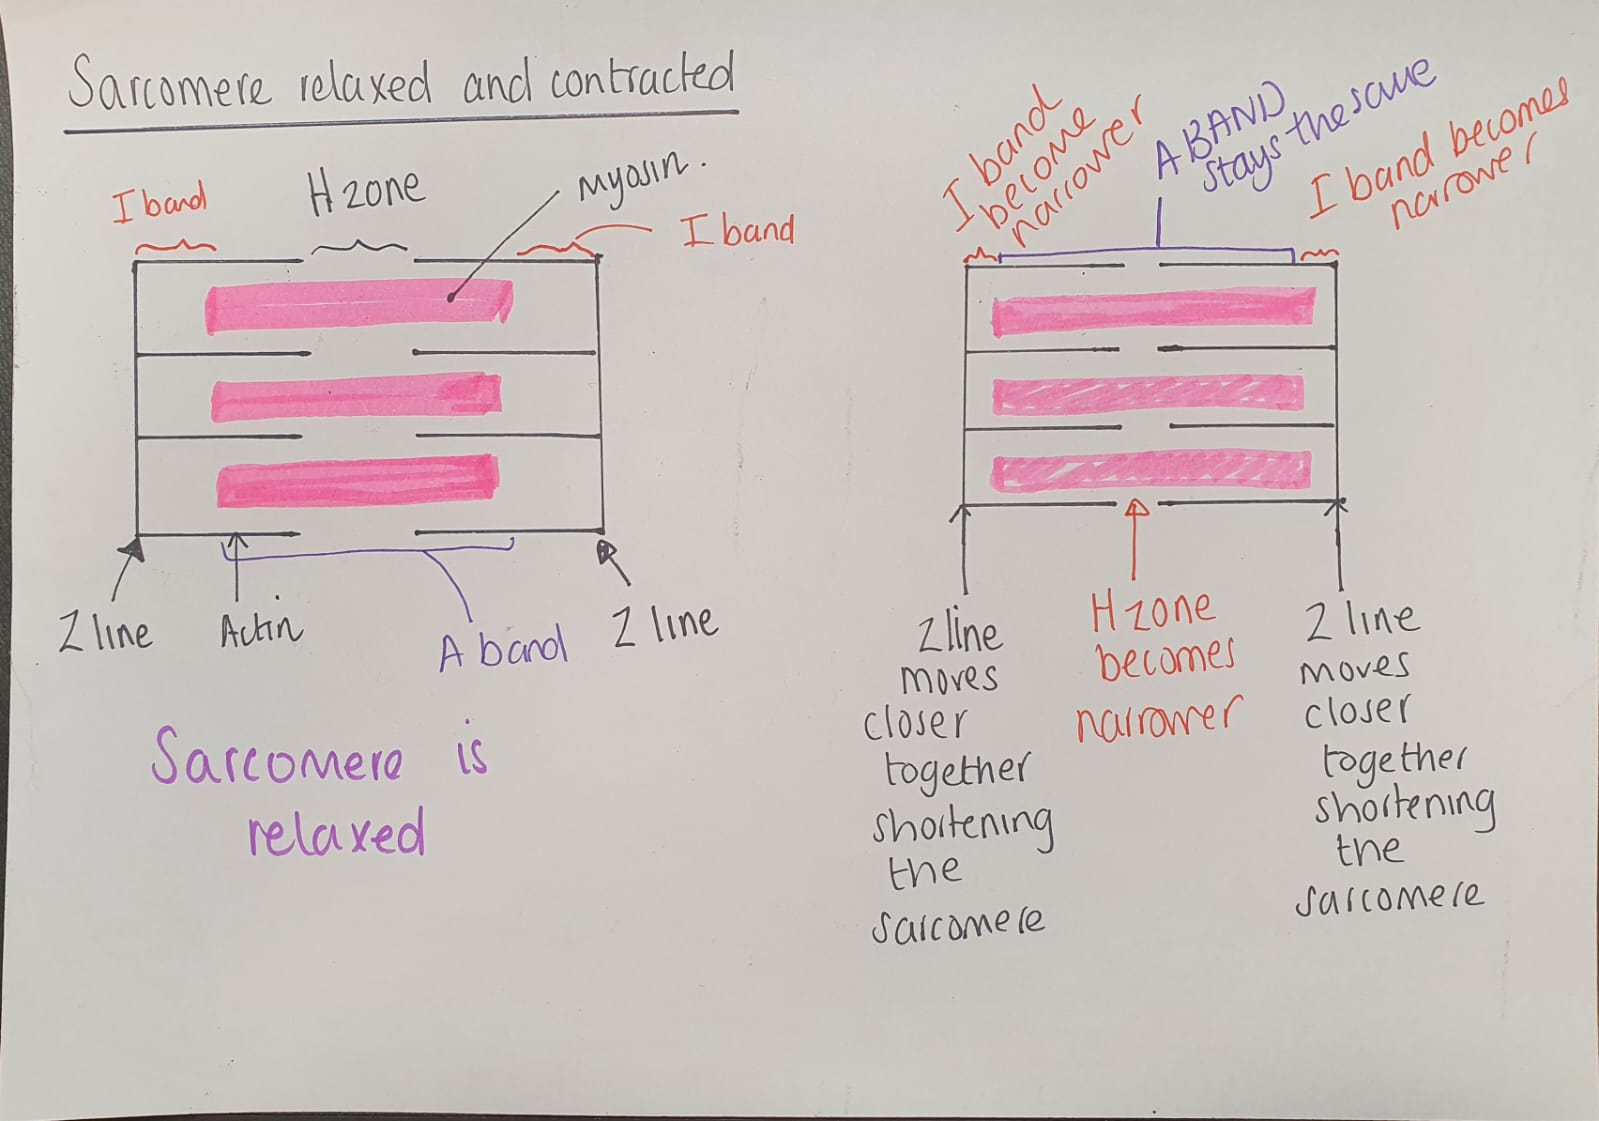 Sarcomere relaxed and contracted
I band
H zone
myosin.
I band
Z line
Actin
A band
Z line
Sarcomere is
relaxed
I band
become
narrower
A BAND
stays the same
I band becomes
narower
Z line
moves
closer
together
shortening
the
sarcomere
H zone
becomes
narrower
Z line
moves
closer
together
shortening
the
sarcomere